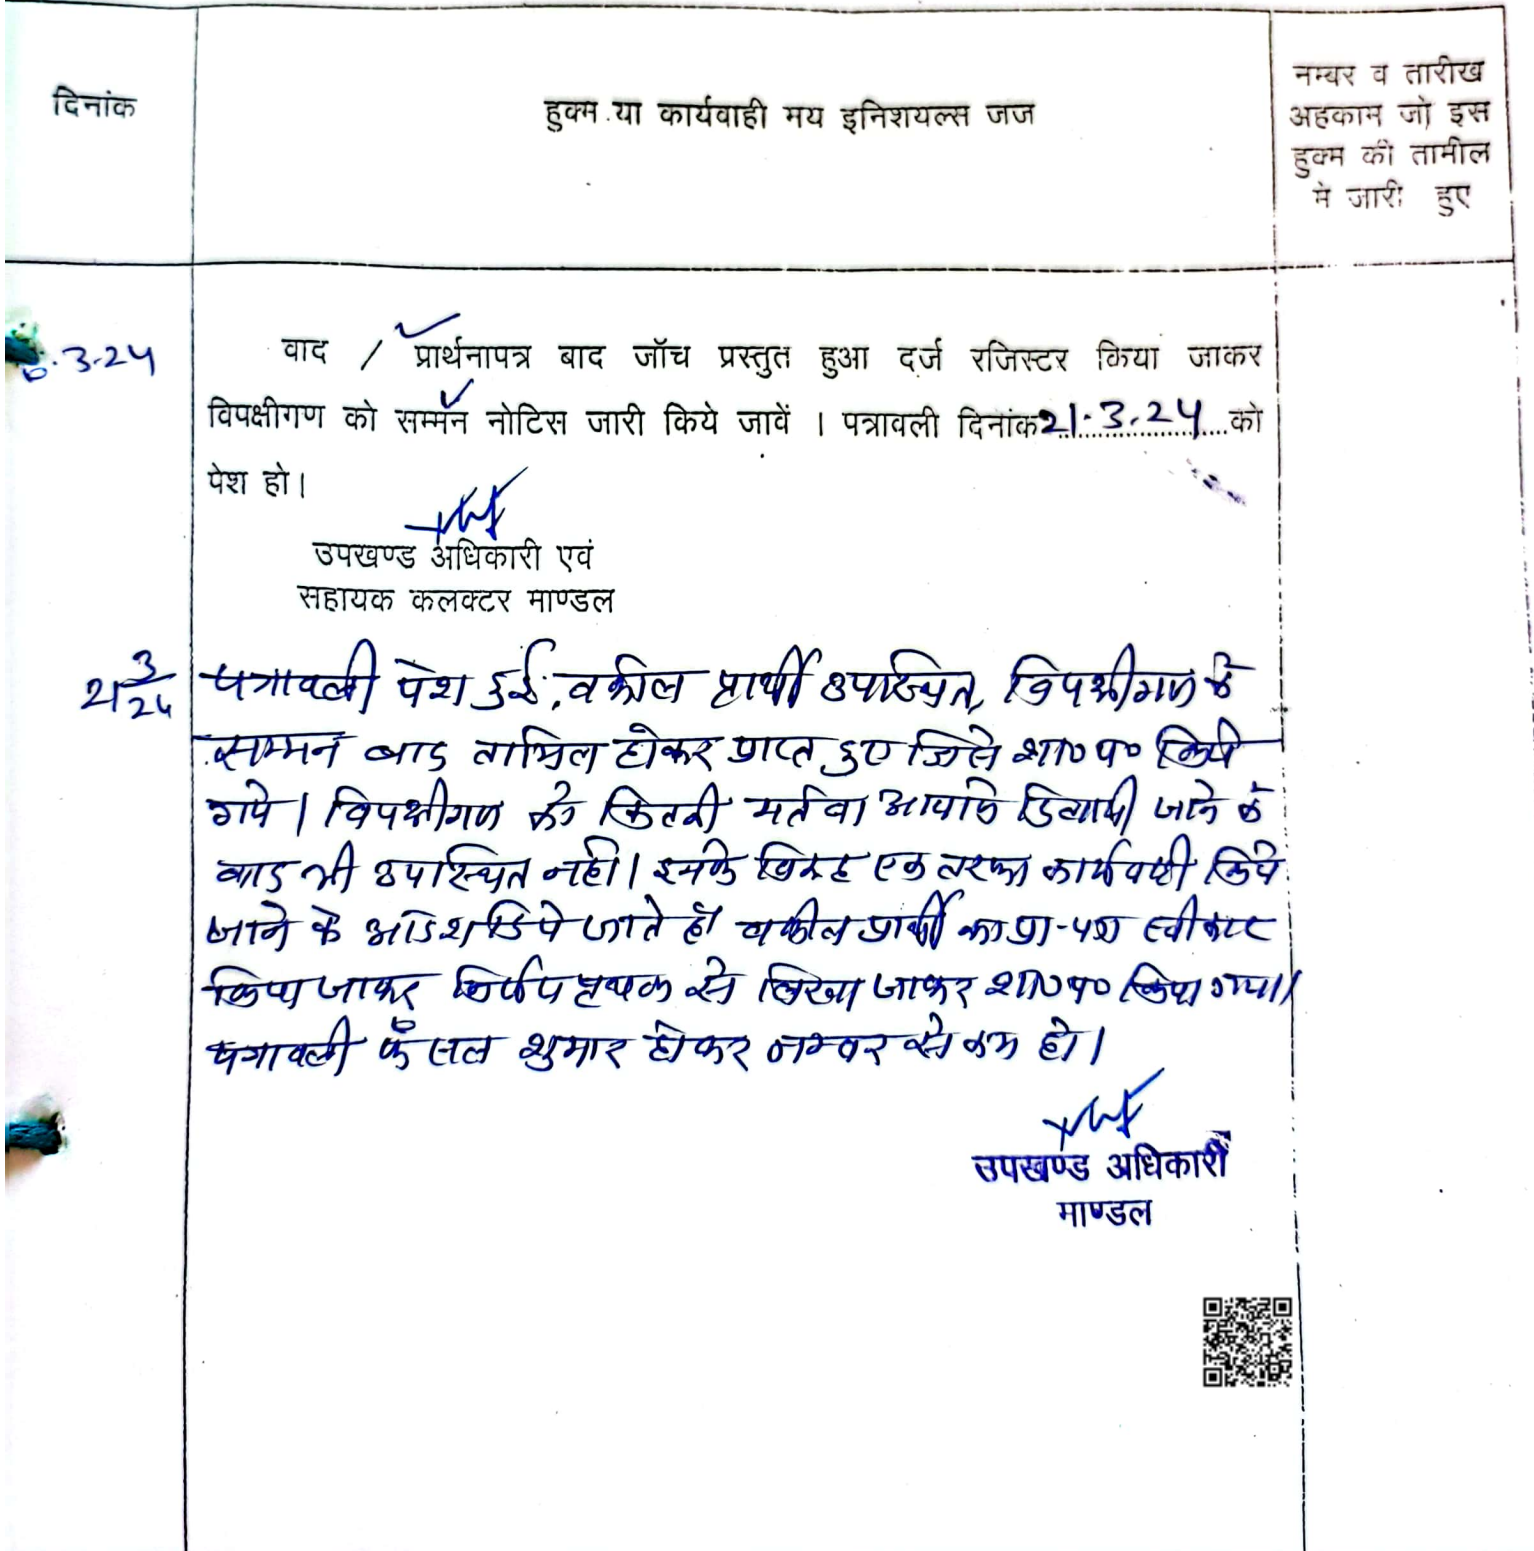 दिनांक
हुक्म या कार्यवाही मय इनिशयल्स जज
नम्बर व तारीख
अहकाम जो इस
हुक्म की तामील
मे जारी हुए
.3.24
वाद / प्रार्थनापत्र बाद जॉच प्रस्तुत हुआ दर्ज रजिस्टर किया जाकर
विपक्षीगण को सम्मन नोटिस जारी किये जावें । पत्रावली दिनांक 21.3.24 को
पेश हो।
उपखण्ड अधिकारी एवं
सहायक कलक्टर माण्डल
21 3/24
पत्रावली पेश हुई, वकील प्रार्थी उपस्थित, विपक्षीगण के
सम्मन बाद तामिल होकर प्राप्त हुए जिसे शा0प0 किये
गये। विपक्षीगण को कितनी मर्तबा आवाजे दिलायी जाने के
बाद भी उपस्थित नही। इनके विरूद्ध एक तरफा कार्यवाही किये
जाने के आदेश दिये जाते है। वकील प्रार्थी का प्रा-पत्र स्वीकार
किया जाकर निर्णय पृथक से लिखा जाकर शा0प0 किया गया।
पत्रावली फैसल शुमार होकर नम्बर से कम हो।
उपखण्ड अधिकारी
माण्डल